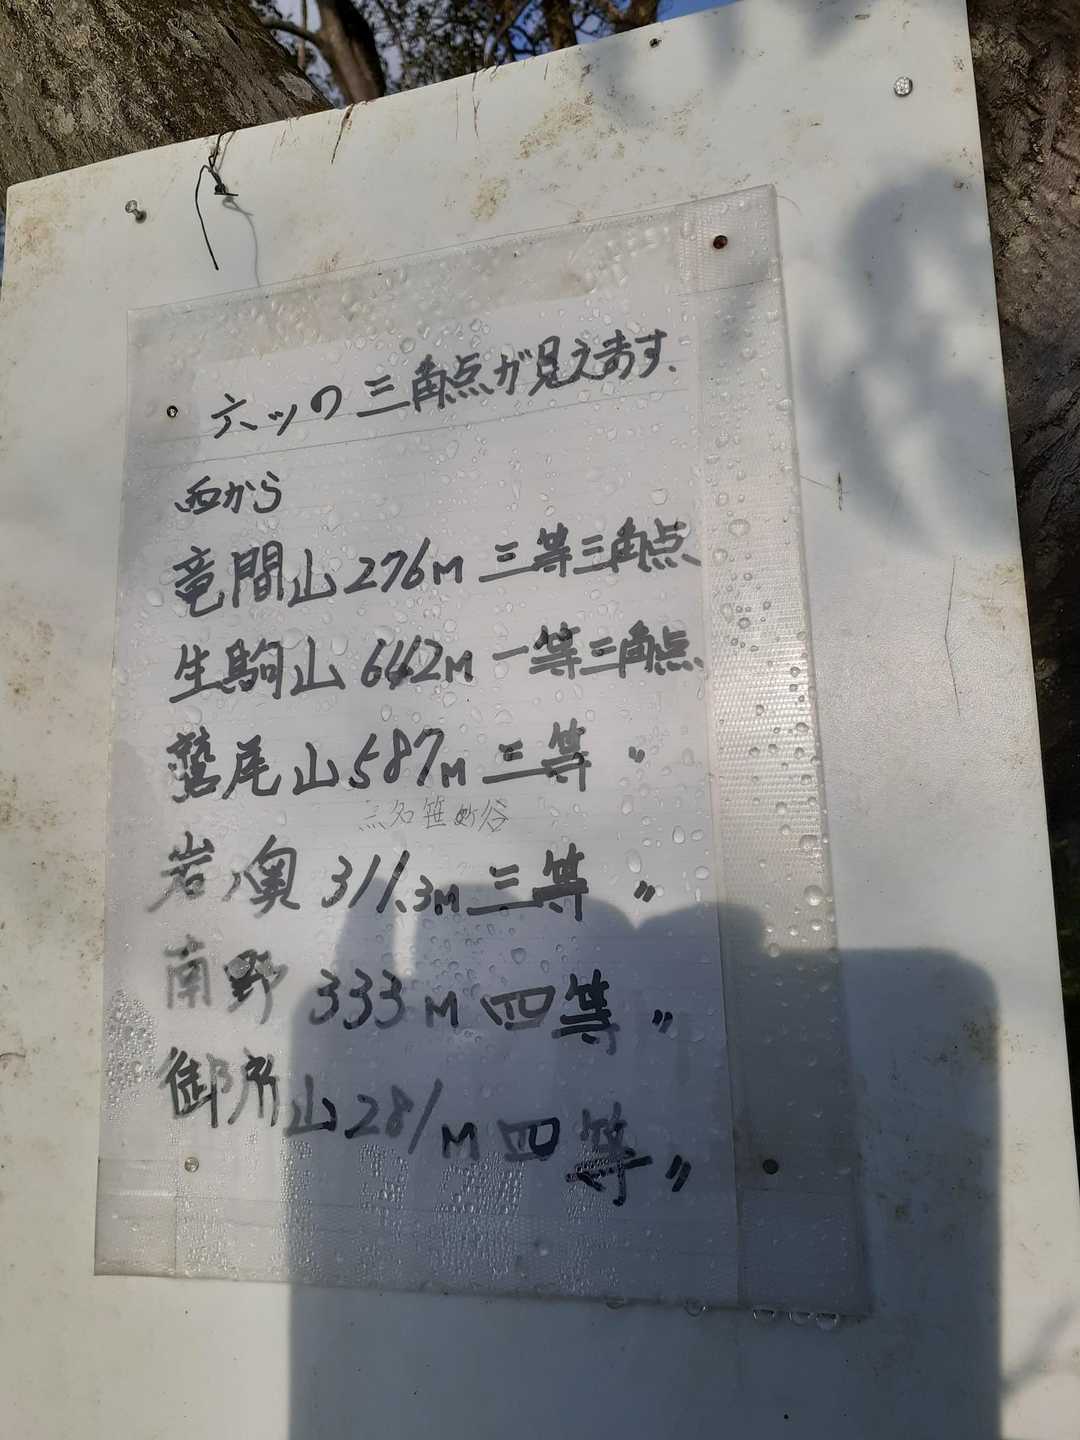 六ッの三角点が見えます.
西から
竜間山276M 三等三角点
生駒山 642M 一等三角点
鷲尾山 587M 三等 〃
点名笹鉾谷
岩ノ奥 311.3M 三等 〃
南野 333M 四等 〃
御所山 281M 四等 〃